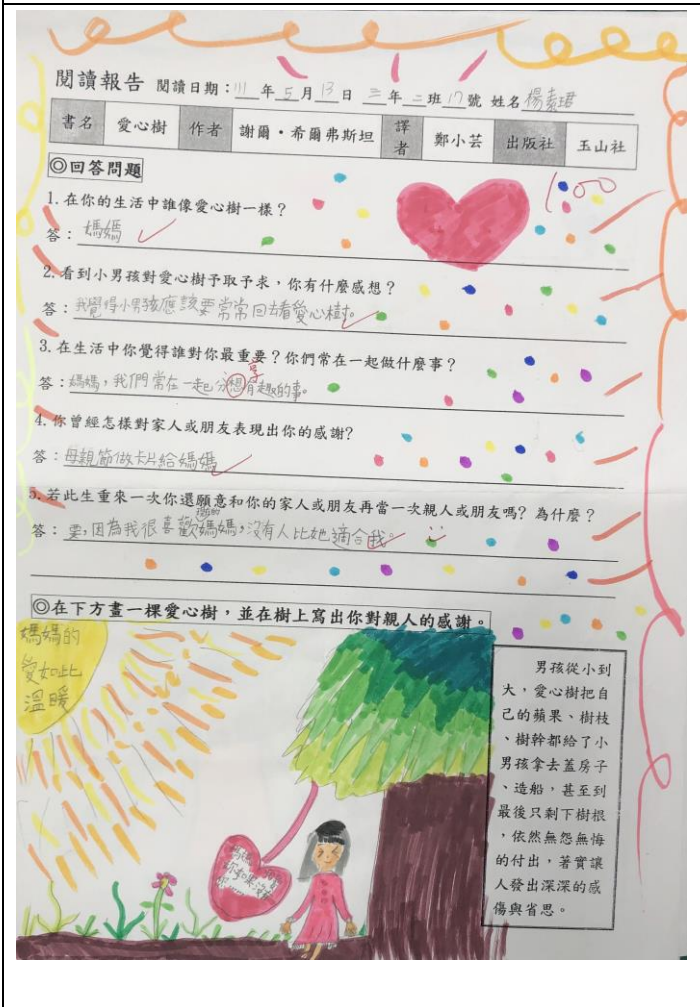 閱讀報告 閱讀日期：111年5月13日 三年二班17號 姓名楊素珺
書名 愛心樹 作者 謝爾·希爾弗斯坦 譯者 鄭小芸 出版社 玉山社
◎回答問題
100
1.在你的生活中誰像愛心樹一樣？
答：媽媽
2.看到小男孩對愛心樹予取予求，你有什麼感想？
答：我覺得小男孩應該要常常回去看愛心樹。
3.在生活中你覺得誰對你最重要？你們常在一起做什麼事？
答：媽媽，我們常在一起分想有趣的事。
4.你曾經怎樣對家人或朋友表現出你的感謝？
答：母親節做卡片給媽媽
5.若此生重來一次你還願意和你的家人或朋友再當一次親人或朋友嗎？為什麼？
答：要，因為我很喜歡我的媽媽，沒有人比她適合我。
◎在下方畫一棵愛心樹，並在樹上寫出你對親人的感謝。
媽媽的
愛如此
溫暖
男孩從小到
大，愛心樹把自
己的蘋果、樹枝
、樹幹都給了小
男孩拿去蓋房子
、造船，甚至到
最後只剩下樹根
，依然無怨無悔
的付出，著實讓
人發出深深的感
傷與省思。